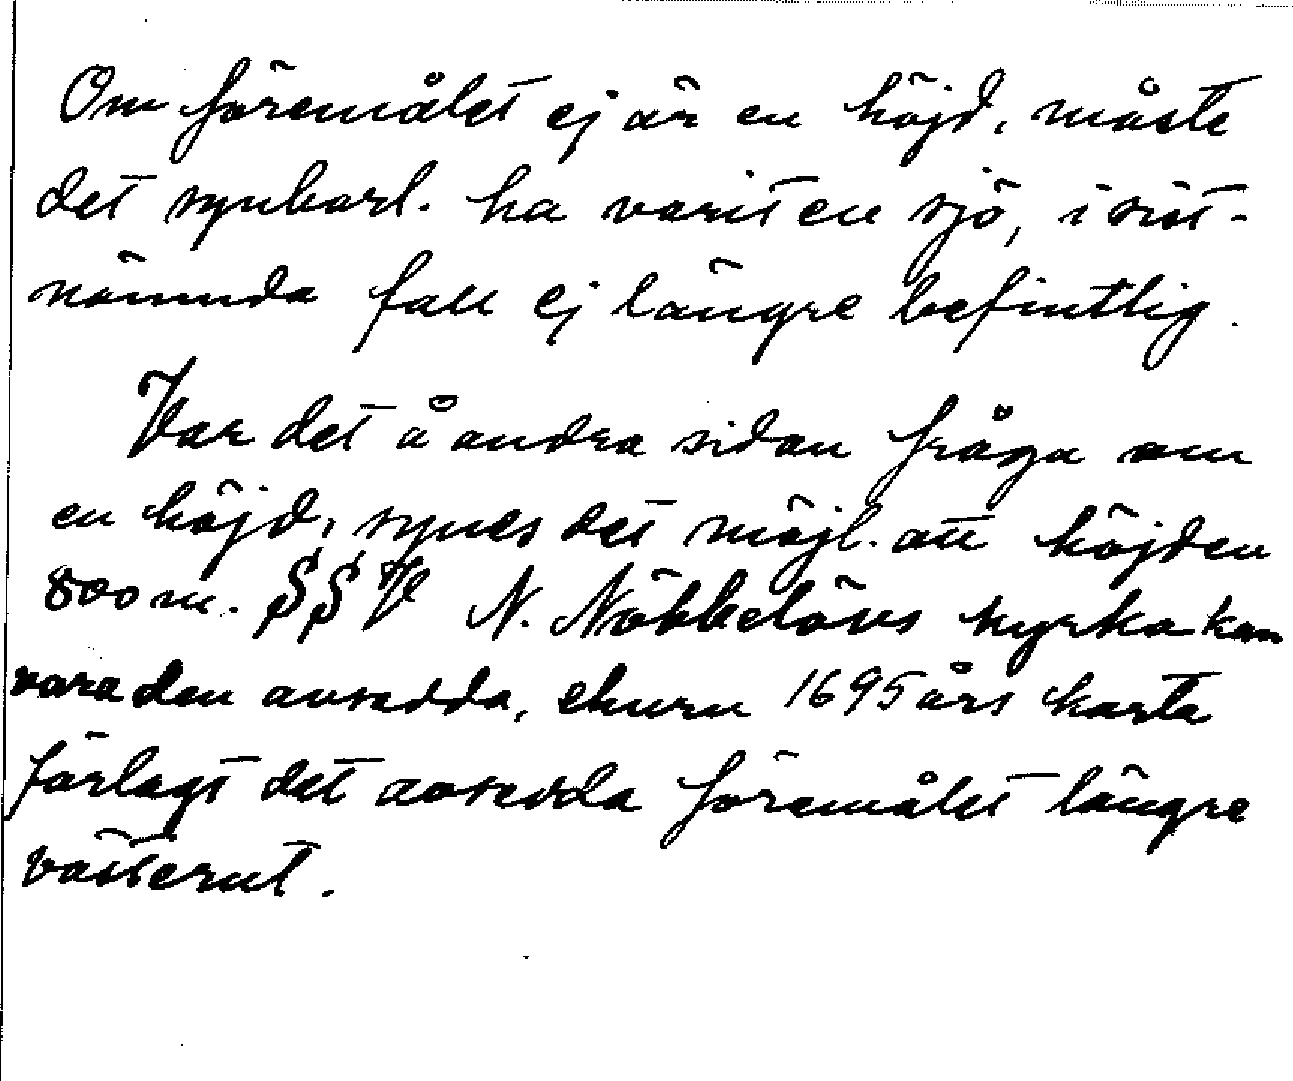 Om föremålet ej är en höjd, måste
det synbarl. ha varit en sjö, i sist-
nämnda fall ej längre befintlig.
Var det å andra sidan fråga om
en höjd, synes det möjl. att höjden
800 m. SSV N. Nöbbelövs kyrka kan
vara den avsedda, ehuru 1695 års karta
förlagt det avsedda föremålet längre
västerut.